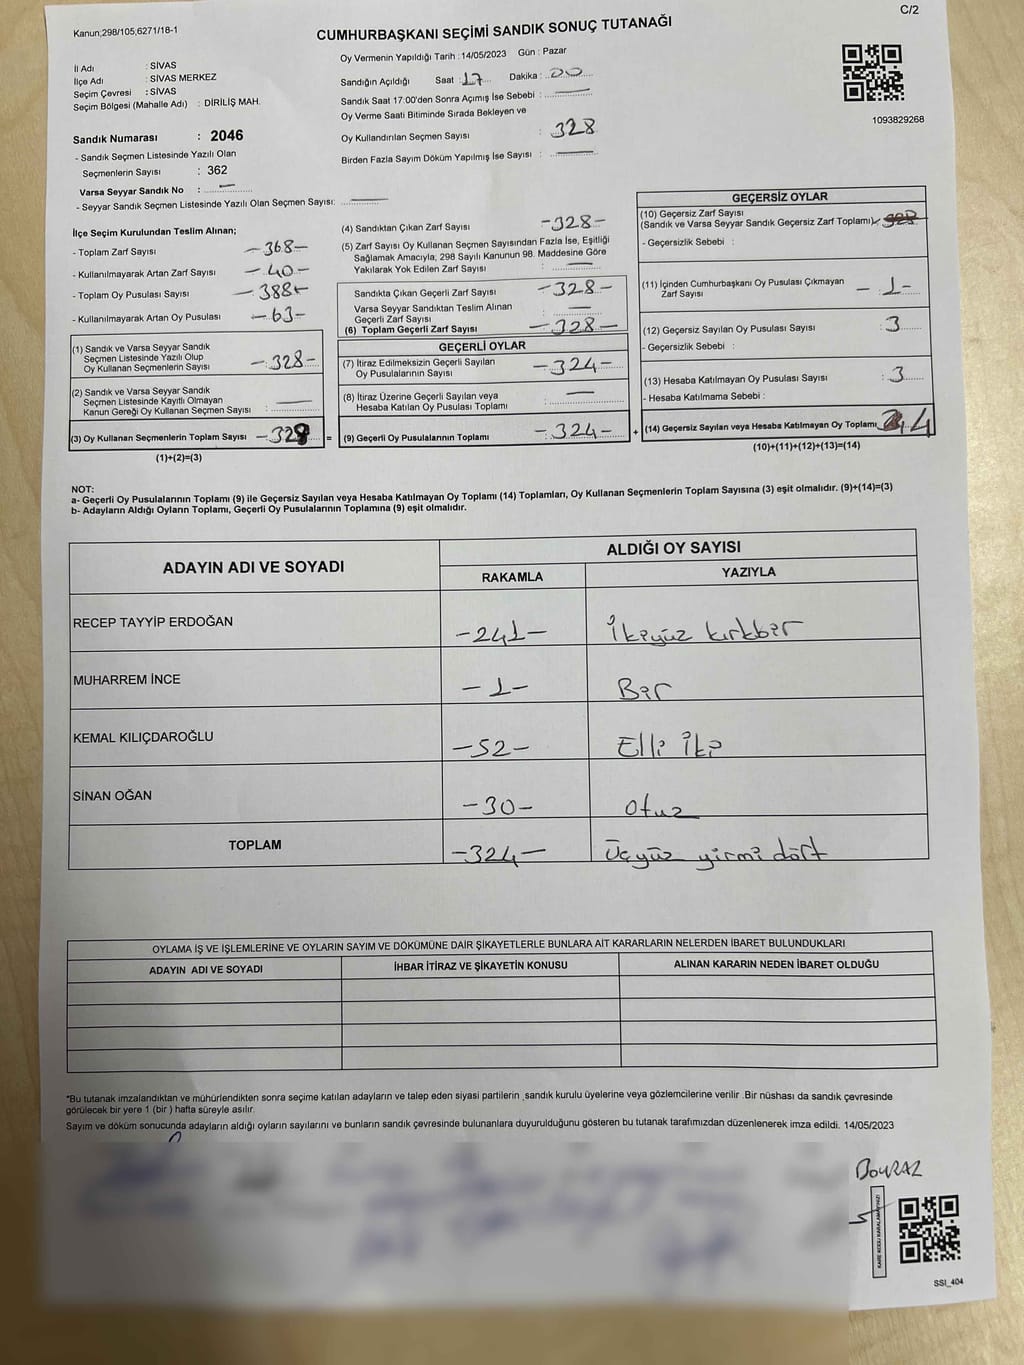 C/2
Kanun;298/105,6271/18-1
CUMHURBAŞKANI SEÇİMİ SANDIK SONUÇ TUTANAĞI
İl Adı : SİVAS
İlçe Adı : SİVAS MERKEZ
Seçim Çevresi : SİVAS
Seçim Bölgesi (Mahalle Adı) : DİRİLİŞ MAH.
Sandık Numarası : 2046
- Sandık Seçmen Listesinde Yazılı Olan
Seçmenlerin Sayısı : 362
Varsa Seyyar Sandık No : —
- Seyyar Sandık Seçmen Listesinde Yazılı Olan Seçmen Sayısı: —
Oy Vermenin Yapıldığı Tarih : 14/05/2023 Gün : Pazar
Sandığın Açıldığı Saat : 17 Dakika : 00
Sandık Saat 17:00'den Sonra Açımış İse Sebebi : —
Oy Verme Saati Bitiminde Sırada Bekleyen ve
Oy Kullandırılan Seçmen Sayısı : 328
Birden Fazla Sayım Döküm Yapılmış İse Sayısı : —
1093829268
İlçe Seçim Kurulundan Teslim Alınan;
- Toplam Zarf Sayısı -368-
- Kullanılmayarak Artan Zarf Sayısı -40-
- Toplam Oy Pusulası Sayısı -388-
- Kullanılmayarak Artan Oy Pusulası -63-
(1) Sandık ve Varsa Seyyar Sandık
Seçmen Listesinde Yazılı Olup
Oy Kullanan Seçmenlerin Sayısı -328-
(2) Sandık ve Varsa Seyyar Sandık
Seçmen Listesinde Kayıtlı Olmayan
Kanun Gereği Oy Kullanan Seçmen Sayısı : —
(3) Oy Kullanan Seçmenlerin Toplam Sayısı -328 =
(1)+(2)=(3)
(4) Sandıktan Çıkan Zarf Sayısı -328-
(5) Zarf Sayısı Oy Kullanan Seçmen Sayısından Fazla İse, Eşitliği
Sağlamak Amacıyla, 298 Sayılı Kanunun 98. Maddesine Göre
Yakılarak Yok Edilen Zarf Sayısı : —
Sandıkta Çıkan Geçerli Zarf Sayısı -328-
Varsa Seyyar Sandıktan Teslim Alınan
Geçerli Zarf Sayısı : —
(6) Toplam Geçerli Zarf Sayısı -328-
GEÇERLİ OYLAR
(7) İtiraz Edilmeksizin Geçerli Sayılan
Oy Pusulalarının Sayısı -324-
(8) İtiraz Üzerine Geçerli Sayılan veya
Hesaba Katılan Oy Pusulası Toplamı : —
(9) Geçerli Oy Pusulalarının Toplamı -324- +
GEÇERSİZ OYLAR
(10) Geçersiz Zarf Sayısı
(Sandık ve Varsa Seyyar Sandık Geçersiz Zarf Toplamı)
- Geçersizlik Sebebi :
(11) İçinden Cumhurbaşkanı Oy Pusulası Çıkmayan
Zarf Sayısı -1-
(12) Geçersiz Sayılan Oy Pusulası Sayısı : 3
- Geçersizlik Sebebi :
(13) Hesaba Katılmayan Oy Pusulası Sayısı : 3
- Hesaba Katılmama Sebebi :
(14) Geçersiz Sayılan veya Hesaba Katılmayan Oy Toplamı 4
(10)+(11)+(12)+(13)=(14)
NOT:
a- Geçerli Oy Pusulalarının Toplamı (9) ile Geçersiz Sayılan veya Hesaba Katılmayan Oy Toplamı (14) Toplamları, Oy Kullanan Seçmenlerin Toplam Sayısına (3) eşit olmalıdır. (9)+(14)=(3)
b- Adayların Aldığı Oyların Toplamı, Geçerli Oy Pusulalarının Toplamına (9) eşit olmalıdır.
ADAYIN ADI VE SOYADI ALDIĞI OY SAYISI
RAKAMLA YAZIYLA
RECEP TAYYİP ERDOĞAN -241- İkiyüz kırkbir
MUHARREM İNCE -1- Bir
KEMAL KILIÇDAROĞLU -52- Elli iki
SİNAN OĞAN -30- otuz
TOPLAM -324- üçyüz yirmi dört
OYLAMA İŞ VE İŞLEMLERİNE VE OYLARIN SAYIM VE DÖKÜMÜNE DAİR ŞİKAYETLERLE BUNLARA AİT KARARLARIN NELERDEN İBARET BULUNDUKLARI
ADAYIN ADI VE SOYADI İHBAR İTİRAZ VE ŞİKAYETİN KONUSU ALINAN KARARIN NEDEN İBARET OLDUĞU
*Bu tutanak imzalandıktan ve mühürlendikten sonra seçime katılan adayların ve talep eden siyasi partilerin ,sandık kurulu üyelerine veya gözlemcilerine verilir .Bir nüshası da sandık çevresinde
görülecek bir yere 1 (bir ) hafta süreyle asılır.
Sayım ve döküm sonucunda adayların aldığı oyların sayılarını ve bunların sandık çevresinde bulunanlara duyurulduğunu gösteren bu tutanak tarafımızdan düzenlenerek imza edildi. 14/05/2023
KARE KODU KARALAMAYINIZ!
SSI_404